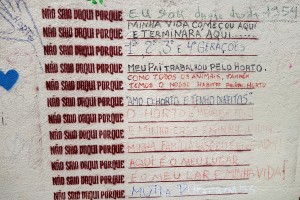 NÃO SAIO DAQUI PORQUE EU SOU
NÃO SAIO DAQUI PORQUE MINHA VIDA COMEÇOU AQUI
E TERMINARÁ AQUI....
NÃO SAIO DAQUI PORQUE 1ª 2ª 3ª e 4ª GERAÇÕES
NÃO SAIO DAQUI PORQUE MEU PAI TRABALHOU PELO HORTO.
NÃO SAIO DAQUI PORQUE COMO TODOS OS ANIMAIS, TAMBÉM
TEMOS O NOSSO HABITAT
NÃO SAIO DAQUI PORQUE AMO O HORTO E TENHO DIREITOS
NÃO SAIO DAQUI PORQUE O HORTO É
NÃO SAIO DAQUI PORQUE E MINHA
NÃO SAIO DAQUI PORQUE MINHA FAMÍLIA
NÃO SAIO DAQUI PORQUE AQUI É O MEU LUGAR
NÃO SAIO DAQUI PORQUE É O MEU LAR E MINHA VIDA!
NÃO SAIO DAQUI PORQUE